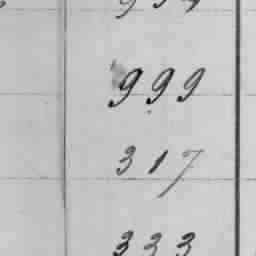 999
317
333